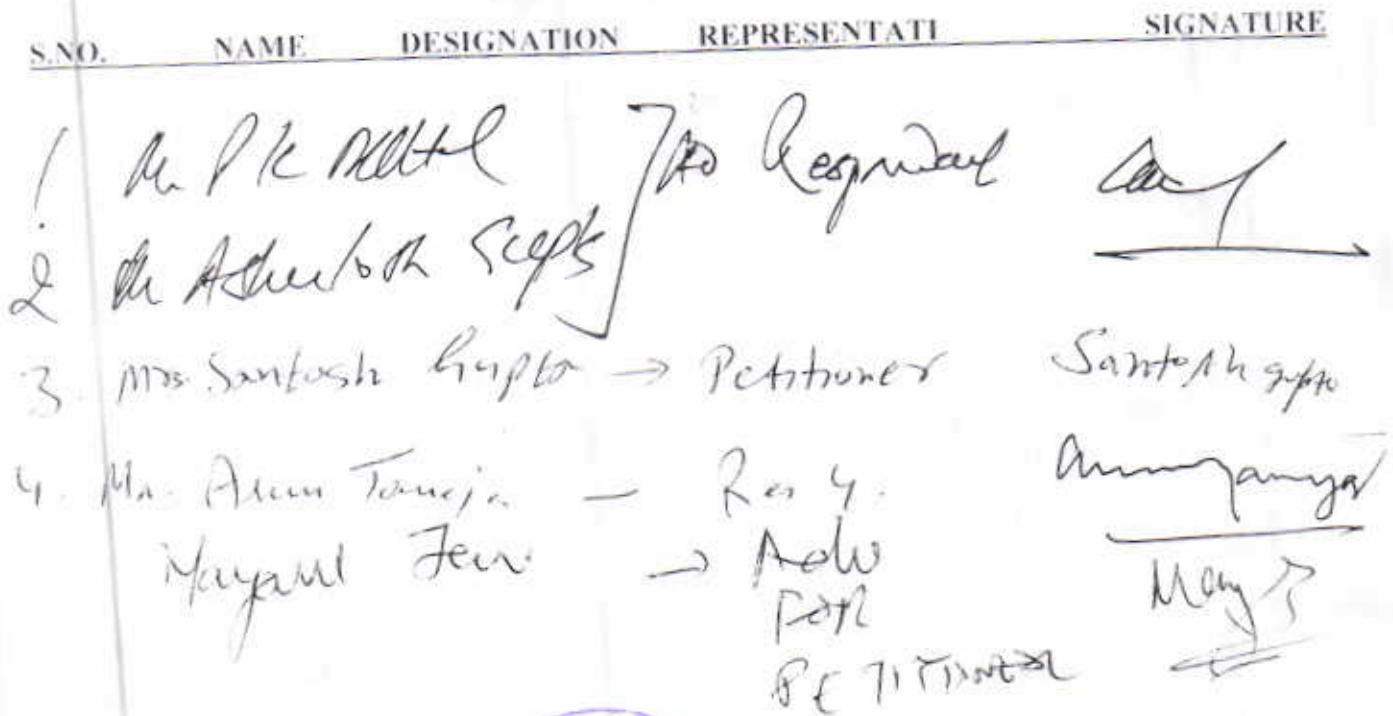 S.NO. NAME DESIGNATION REPRESENTATI SIGNATURE
1 Mr P K Mittal Respondent
2 Mr Ashutosh Gupta
3. Mrs. Santosh Gupta → Petitioner Santosh gupta
4. Mr. Arun Taneja — Res 4.
Mayank Jain → Adv
FOR
PETITIONER